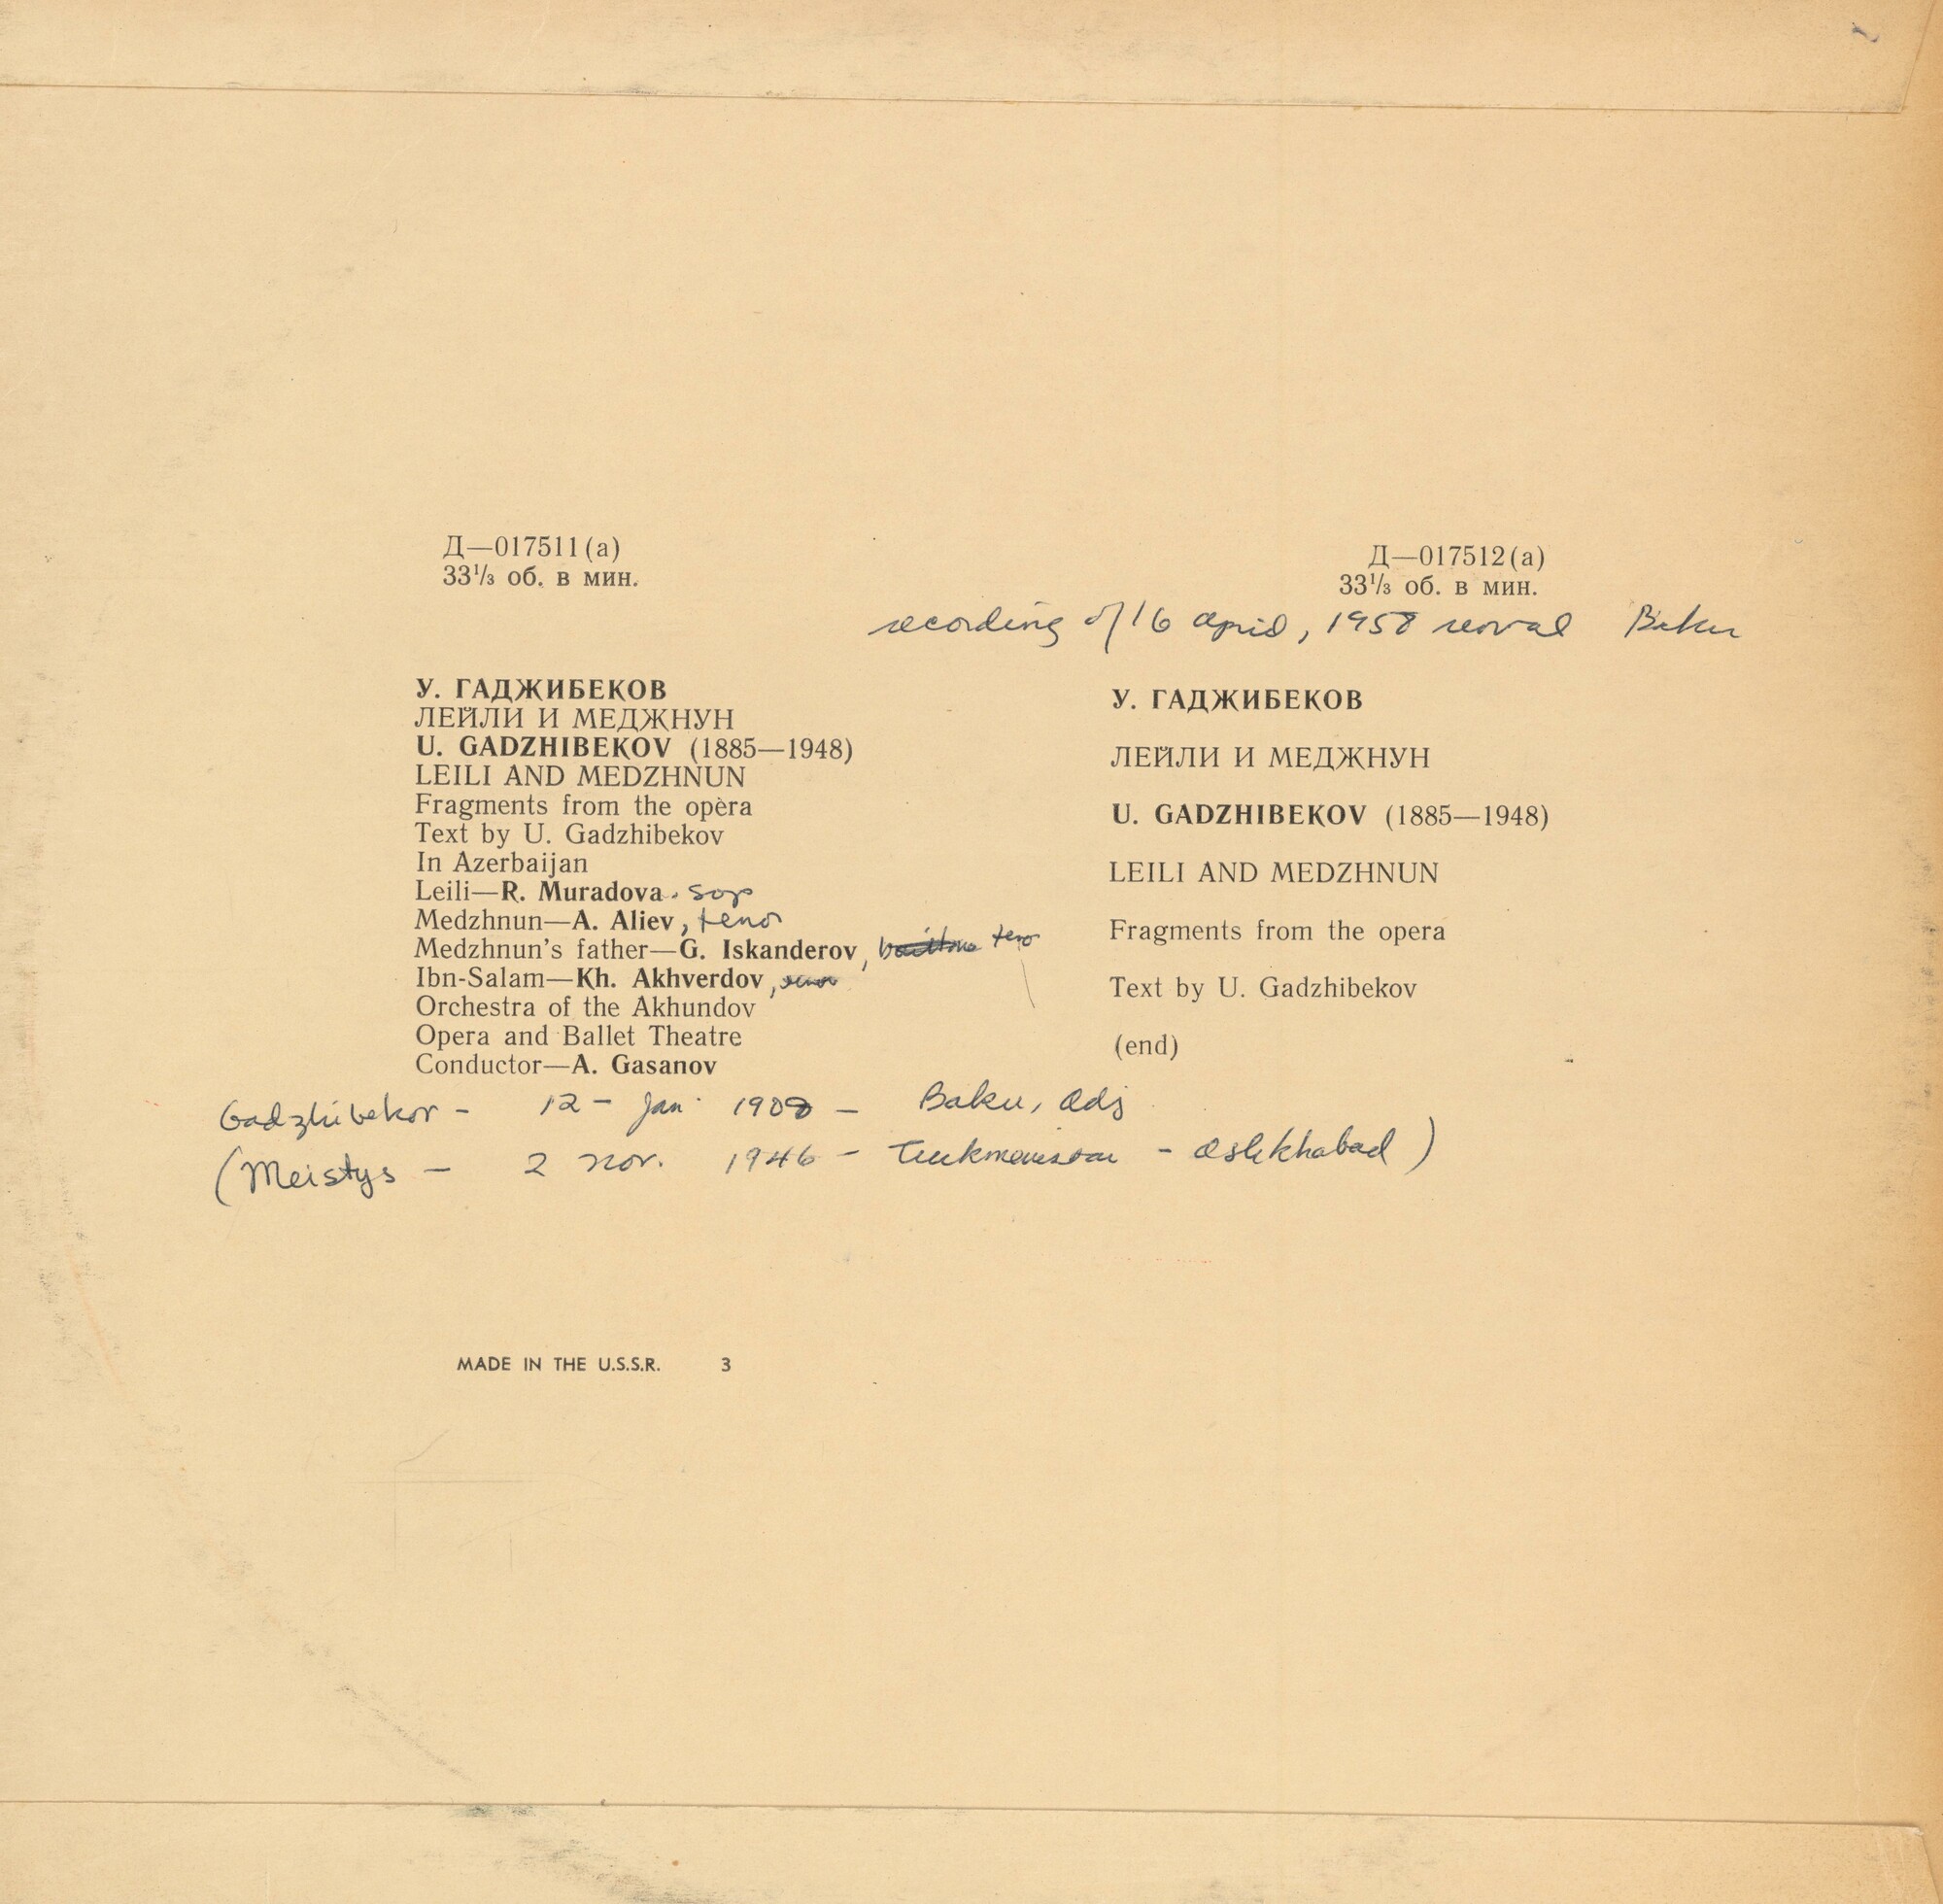 Д—017511(а)
33⅓ об. в мин.
Д—017512(а)
33⅓ об. в мин.
recording of 16 april, 1958 revival Baku
У. ГАДЖИБЕКОВ
ЛЕЙЛИ И МЕДЖНУН
U. GADZHIBEKOV (1885—1948)
LEILI AND MEDZHNUN
Fragments from the opèra
Text by U. Gadzhibekov
In Azerbaijan
Leili—R. Muradova. sop
Medzhnun—A. Aliev, tenor
Medzhnun's father—G. Iskanderov, baritone tenor
Ibn-Salam—Kh. Akhverdov, tenor
Orchestra of the Akhundov
Opera and Ballet Theatre
Conductor—A. Gasanov
У. ГАДЖИБЕКОВ
ЛЕЙЛИ И МЕДЖНУН
U. GADZHIBEKOV (1885—1948)
LEILI AND MEDZHNUN
Fragments from the opera
Text by U. Gadzhibekov
(end)
Gadzhibekov - 12 - Jan 1908 - Baku,
(Meistys - 2 nov. 1946 - Turkmenistan - ashkhabad)
MADE IN THE U.S.S.R. 3